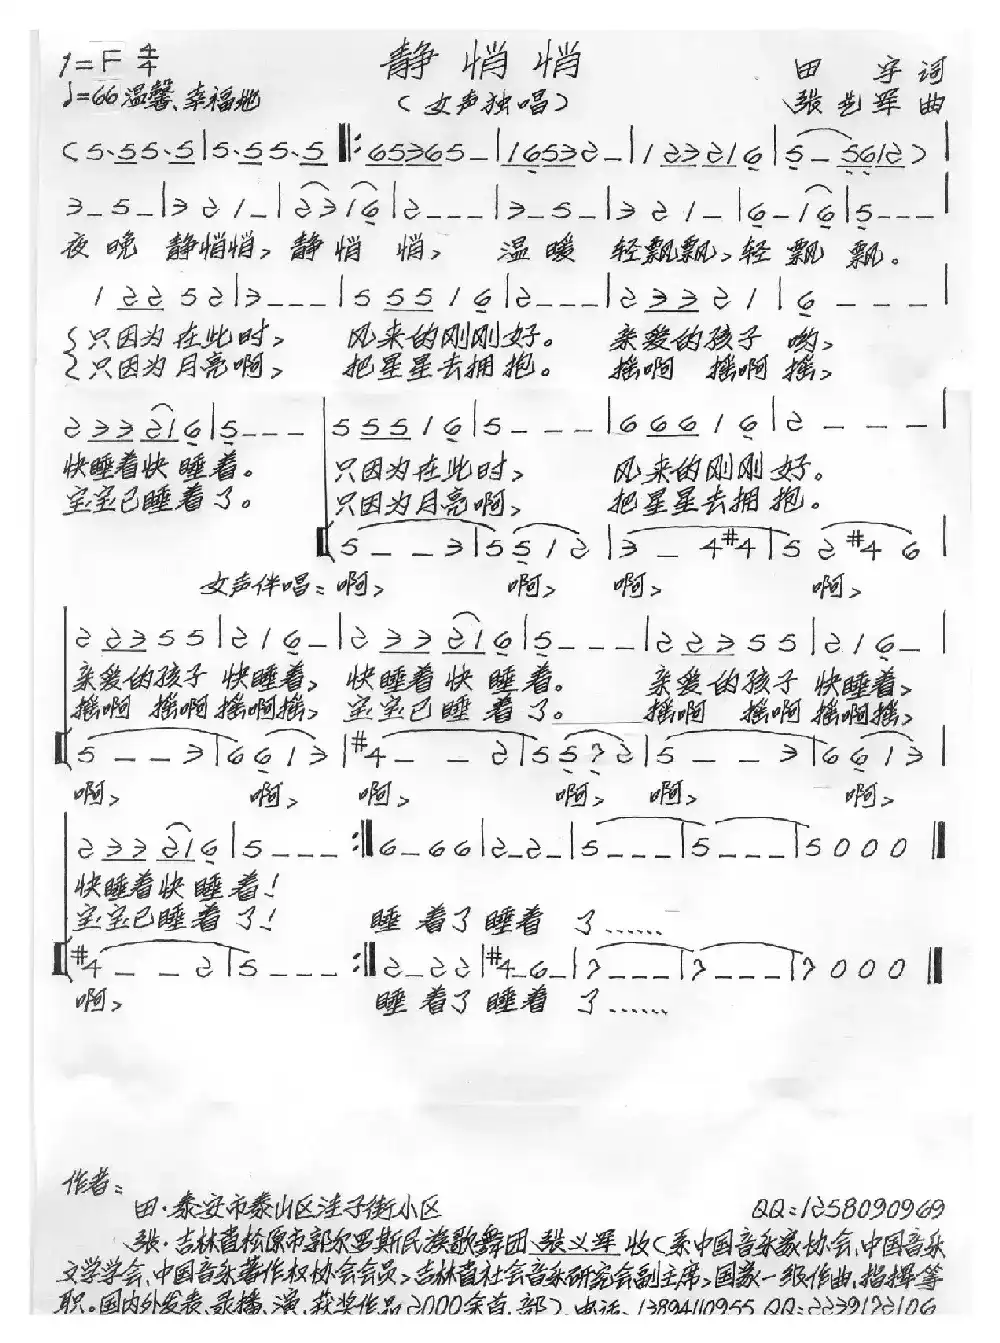 1=F 4/4 静悄悄 田宇词
♩=66 温馨、幸福地 (女声独唱) 张艺军曲
(5·55·5|5·55·5‖:65365_|16532_|123216|5_5612)|
3_5_|321_|2316|2___|3_5_|321_|6_16|5___|
夜晚 静悄悄, 静悄 悄, 温暖 轻飘飘,轻飘 飘。
12252|3___|55516|2___|23321|6___|
只因为在此时, 风来的刚刚好。 亲爱的孩子 哟,
只因为月亮啊, 把星星去拥抱。 摇啊 摇啊摇,
233216|5___ 55516|5___|66616|2___|
快睡着快睡着。 只因为在此时, 风来的刚刚好。
宝宝已睡着了。 只因为月亮啊, 把星星去拥抱。
5__3|5512|3_4#4|52#46|
女声伴唱: 啊, 啊, 啊, 啊,
22355|216_|233216|5___|22355|216_|
亲爱的孩子 快睡着, 快睡着快睡着。 亲爱的孩子 快睡着,
摇啊 摇啊摇啊摇, 宝宝已睡着了。 摇啊 摇啊摇啊摇,
5__3|6613|#4__2|55?2|5__3|6613|
啊, 啊, 啊, 啊, 啊, 啊,
233216|5___:‖6_66|2_2_|5___|5___|5000‖
快睡着快睡着!
宝宝已睡着了! 睡着了睡着 了……
#4__2|5___:‖2_22|#4_6_|?___|?___|?000‖
啊, 睡着了睡着 了……
作者:
田·泰安市泰山区洼子街小区 QQ:1258090969
张·吉林省松原市郭尔罗斯民族歌舞团 张义军 收(系中国音乐家协会、中国音乐
文学学会、中国音乐著作权协会会员,吉林省社会音乐研究会副主席,国家一级作曲,指挥等
职。国内外发表、录播、演、获奖作品2000余首、部) 电话:13894110955 QQ:2239172106